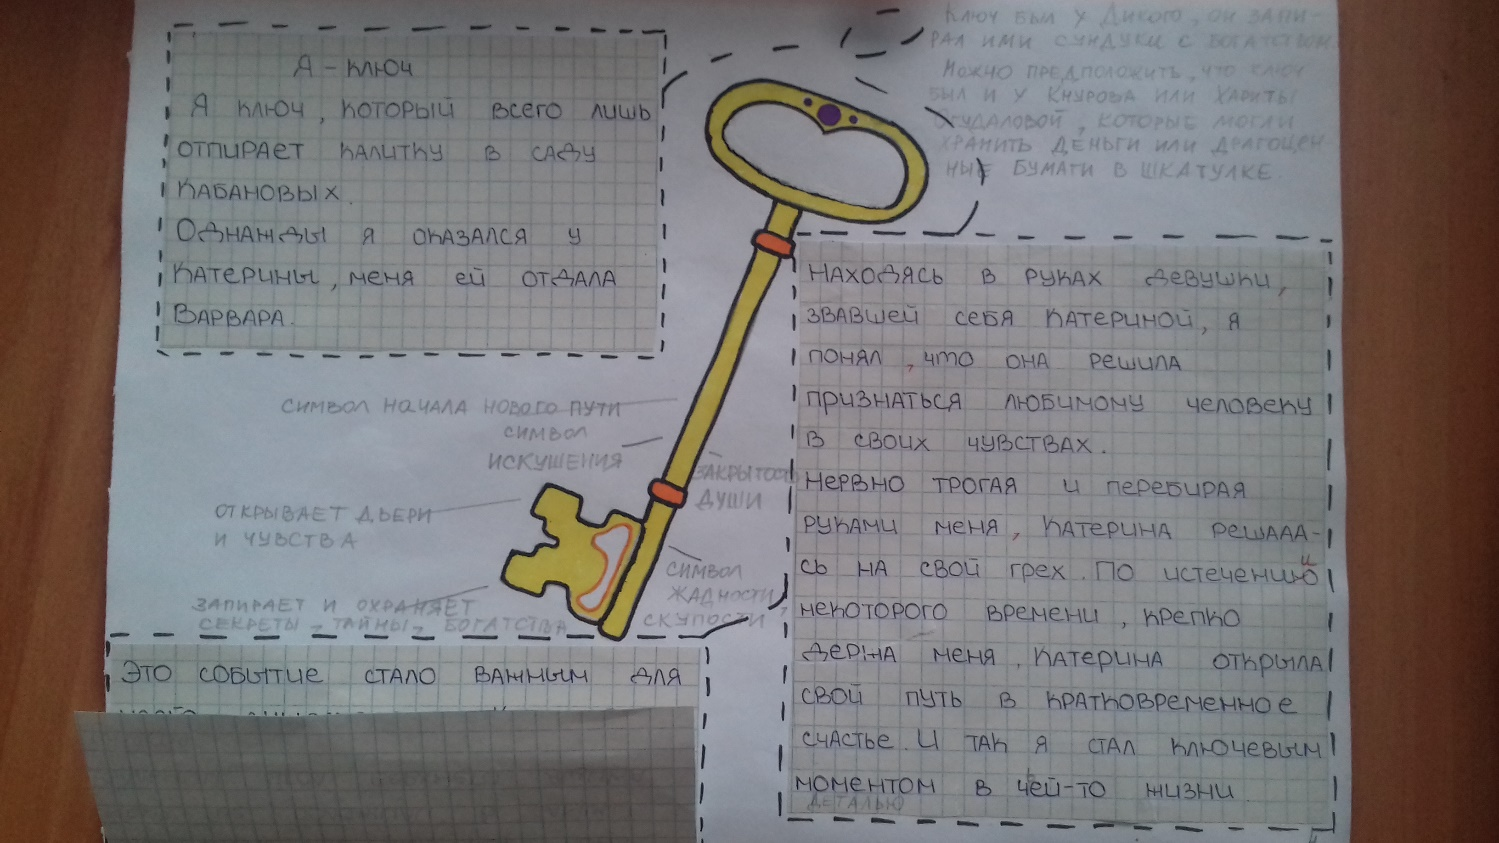 Я - ключ
Я ключ, который всего лишь
отпирает калитку в саду
Кабановых.
Однажды я оказался у
Катерины, меня ей отдала
Варвара.
Ключ был у Дикого, он запи-
рал ими сундуки с богатством.
Можно предположить, что ключ
был и у Кнурова или Хариты
Огудаловой, которые могли
хранить деньги или драгоцен-
ные бумаги в шкатулке.
символ начала нового пути
символ
искушения
закрытость
души
открывает двери
и чувства
символ
жадности,
скупости
запирает и охраняет
секреты, тайны, богатства
Находясь в руках девушки,
звавшей себя Катериной, я
понял, что она решила
признаться любимому человеку
в своих чувствах.
Нервно трогая и перебирая
руками меня, Катерина решала-
сь на свой грех. По истечению
и
некоторого времени, крепко
держа меня, Катерина открыла
свой путь в кратковременное
счастье. И так я стал ключевым
моментом в чей-то жизни.
деталью
Это событие стало важным для